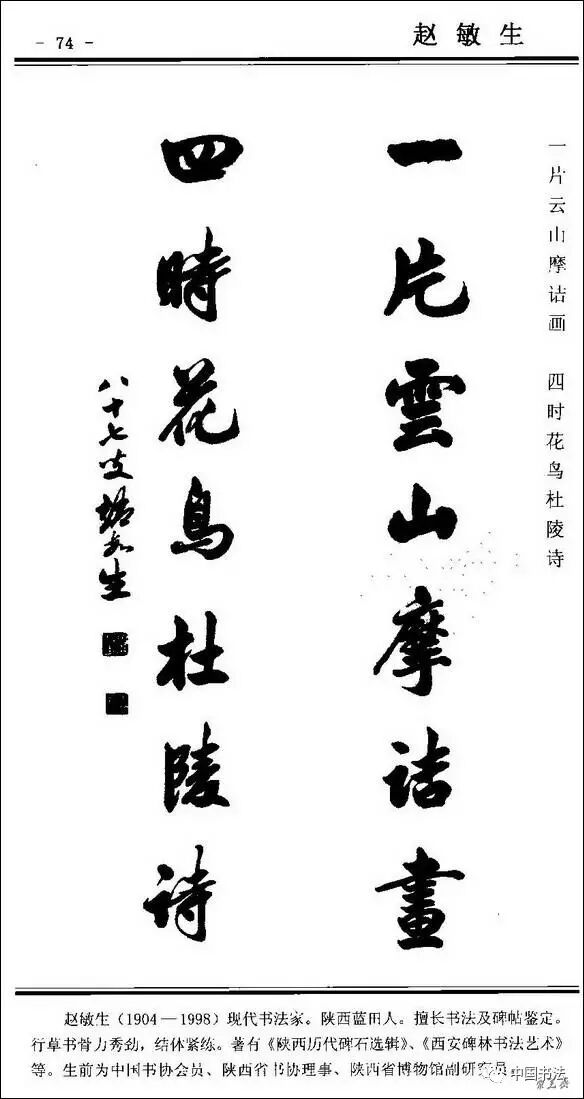 - 74 -
赵敏生
一片云山摩诘画 四时花鸟杜陵诗
一片雲山摩詰畫
四時花鳥杜陵詩
八十七叟趙敏生
赵敏生(1904—1998)现代书法家。陕西蓝田人。擅长书法及碑帖鉴定。
行草书骨力秀劲,结体紧练。著有《陕西历代碑石选辑》、《西安碑林书法艺术》
等。生前为中国书协会员、陕西省书协理事、陕西省博物馆副研究员。
中国书法